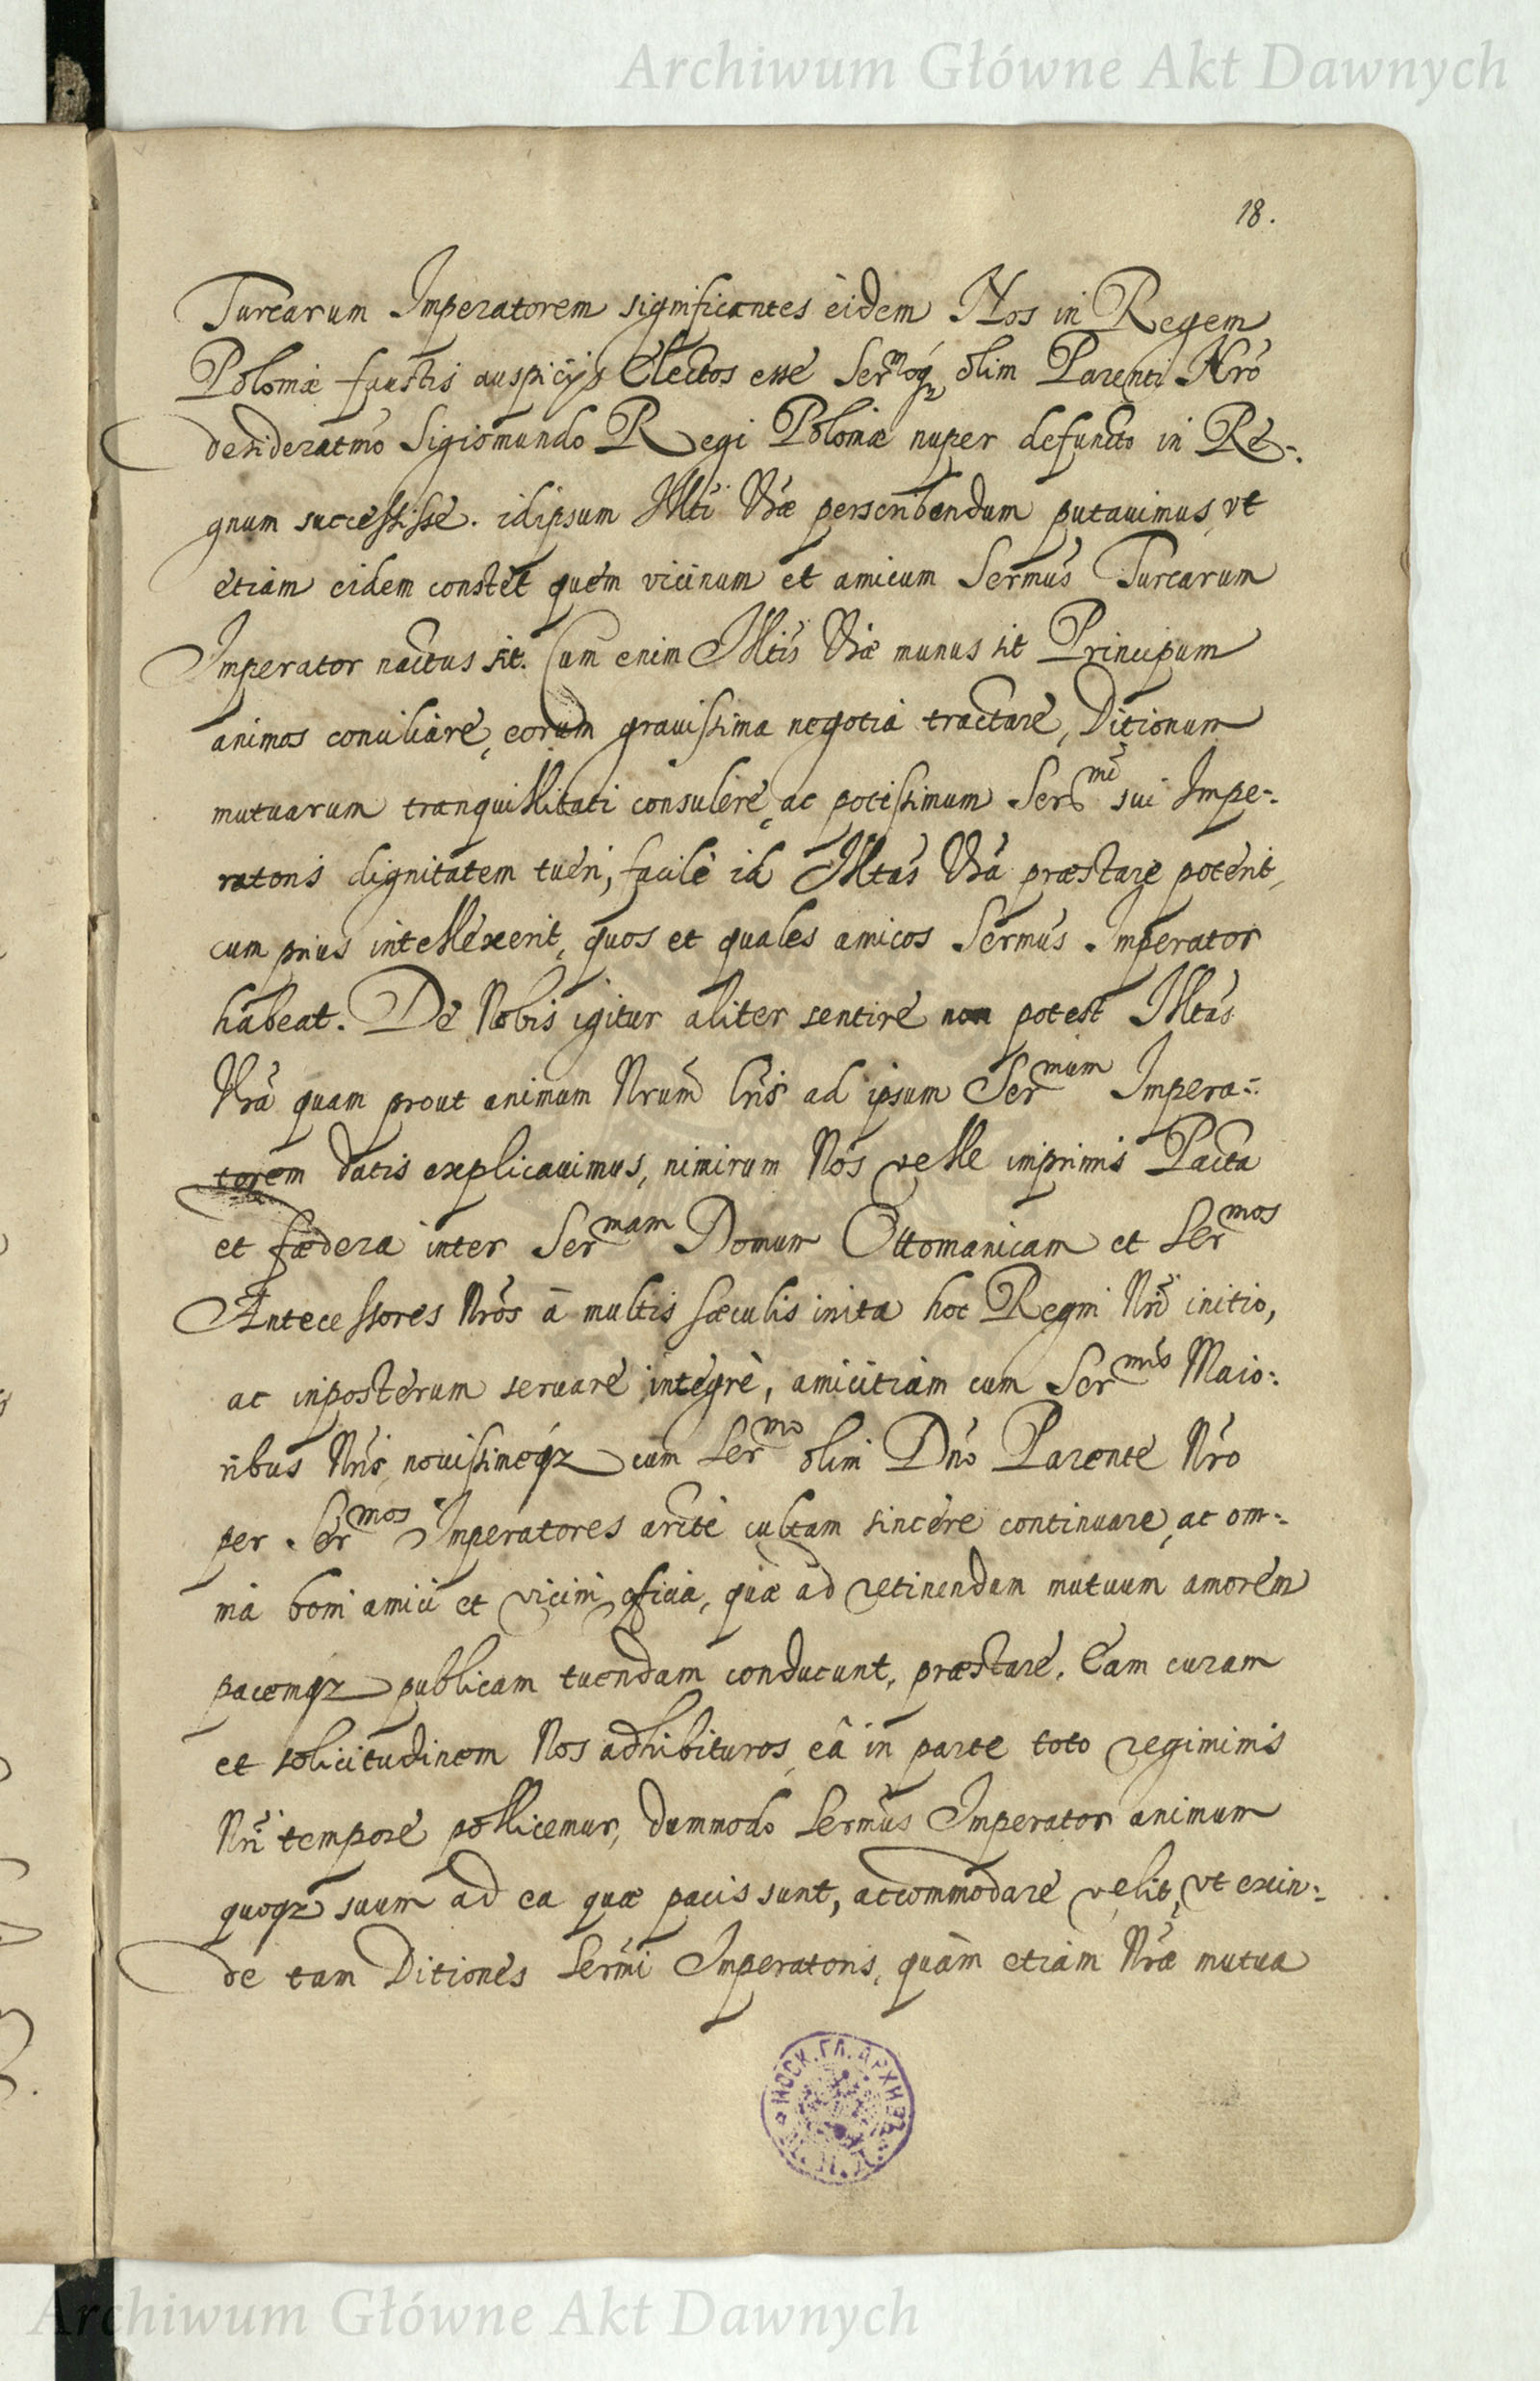 Archiwum Główne Akt Dawnych
18.
Turcarum Imperatorem significantes eidem Nos in Regem
Poloniæ faustis auspicijs Electos esse Ser^moq₃ olim Parenti Nrō
desideratmō Sigismundo Regi Poloniæ nuper defuncto in Re-
gnum successisse. idipsum Illti Vræ perscribendum putauimus, vt
etiam eidem constet quem vicinum et amicum Sermus Turcarum
Imperator nactus sit. Cum enim Illtis Vræ munus sit Principum
animos conciliare, eorum grauissima negotia tractare, Ditionum
mutuarum tranquillitati consulere, ac potissimum Ser^mi sui Impe-
ratoris dignitatem tueri, facilè id Illtas Vra præstare poterit,
cum prius intellexerit, quos et quales amicos Sermus Imperator
habeat. De Nobis igitur aliter sentire non potest Illtas
Vra quam prout animum Nrum lris ad ipsum Ser^mum Impera-
torem datis explicauimus, nimirum Nos velle imprimis Pacta
et fædera inter Ser^mam Domum Ottomanicam et Ser^mos
Antecessores Nros à multis sæculis inita hoc Regni Nri initio,
ac inposterum seruare integrè, amicitiam cum Ser^mis Maio-
ribus Nris, nouissimeq₃ cum Ser^mo olim Dno Parente Nro
per Ser^mos Imperatores arctè cultam sincere continuare, ac om-
nia boni amici et vicini officia, quæ ad retinendum mutuum amorem
pacemq₃ publicam tuendam conducunt, præstare. Eam curam
et solicitudinem Nos adhibituros, eâ in parte toto regiminis
Nri tempore pollicemur, dummodo Sermus Imperator animum
quoq₃ suum ad ea quæ pacis sunt, accommodare velit, vt exin-
de tam Ditiones Sermi Imperatoris, quàm etiam Nræ mutua
МОСК. ГЛ. АРХИВЪ
Archiwum Główne Akt Dawnych